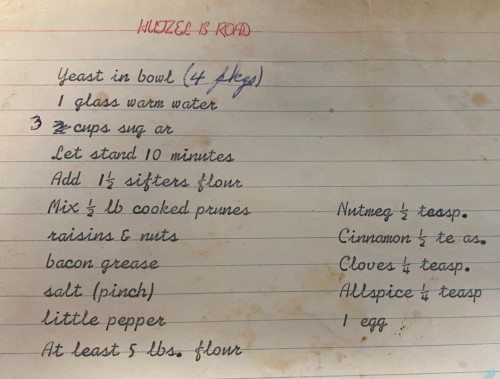 HUTZEL B ROAD
Yeast in bowl (4 pkgs)
1 glass warm water
3 cups sug ar
Let stand 10 minutes
Add 1½ sifters flour
Mix ½ lb cooked prunes
raisins & nuts
bacon grease
salt (pinch)
little pepper
At least 5 lbs. flour
Nutmeg ½ teasp.
Cinnamon ½ te as.
Cloves ¼ teasp.
Allspice ¼ teasp
1 egg